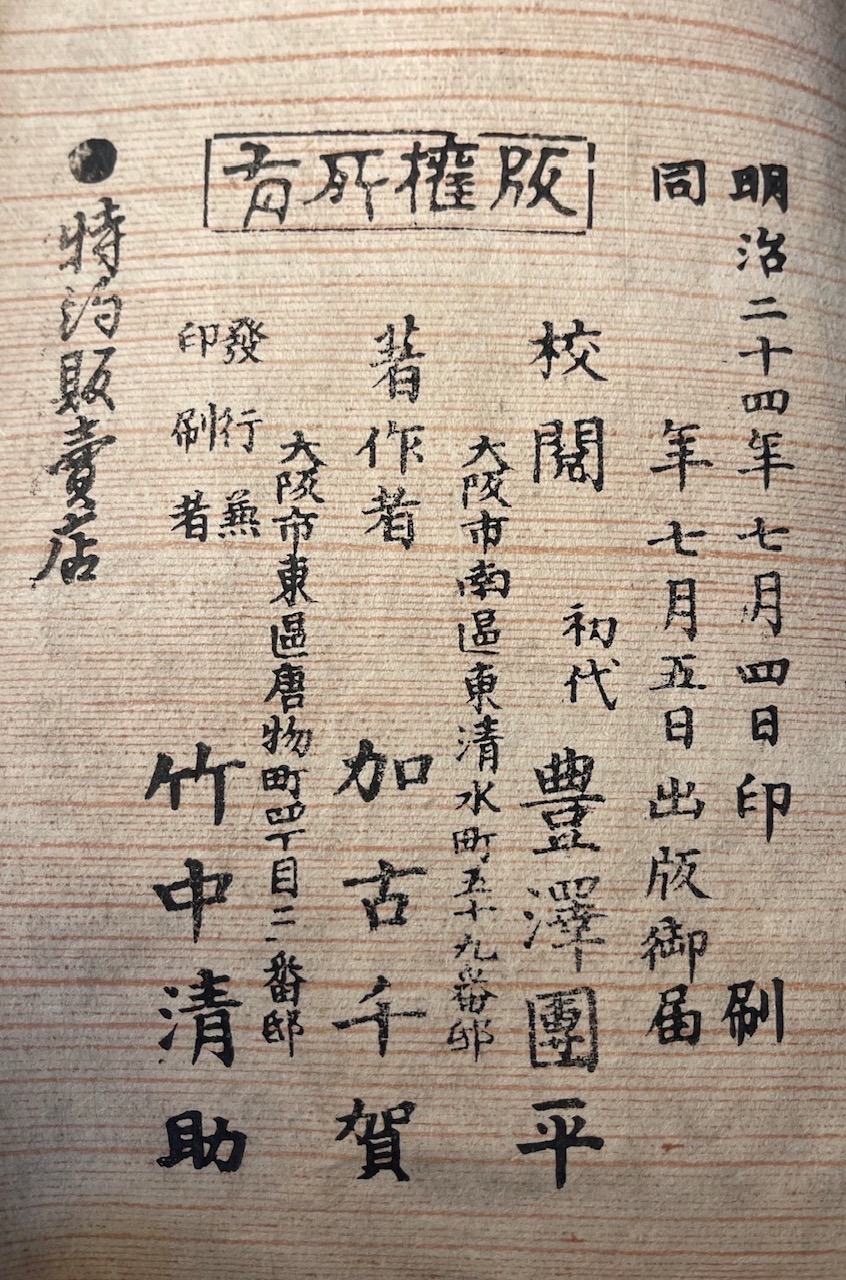 明治二十四年七月四日印刷
同年七月五日出版御届
版權所有
校閲 初代 豊澤團平
大阪市南區東清水町五十九番邸
著作者 加古千賀
大阪市東區唐物町四丁目二番邸
發行兼
印刷者 竹中清助
●特約販賣店